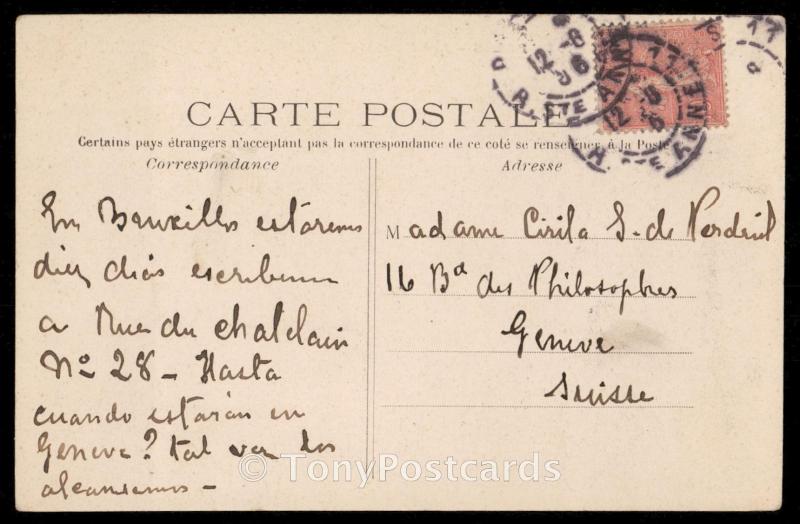 CARTE POSTALE
Certains pays étrangers n'acceptant pas la correspondance de ce coté se renseigner à la Poste
Correspondance
En Bruxelles estaremos
diez dias escribenos
a Rue du chatelain
Nº 28 - Hasta
cuando estarán en
Geneve? tal vez los
alcancemos -
Adresse
Madame Cirila S. de Verdeil
16 Bd des Philosophes
Geneve
Suisse
12 -8
06
R. STE ANNE
© TonyPostcards